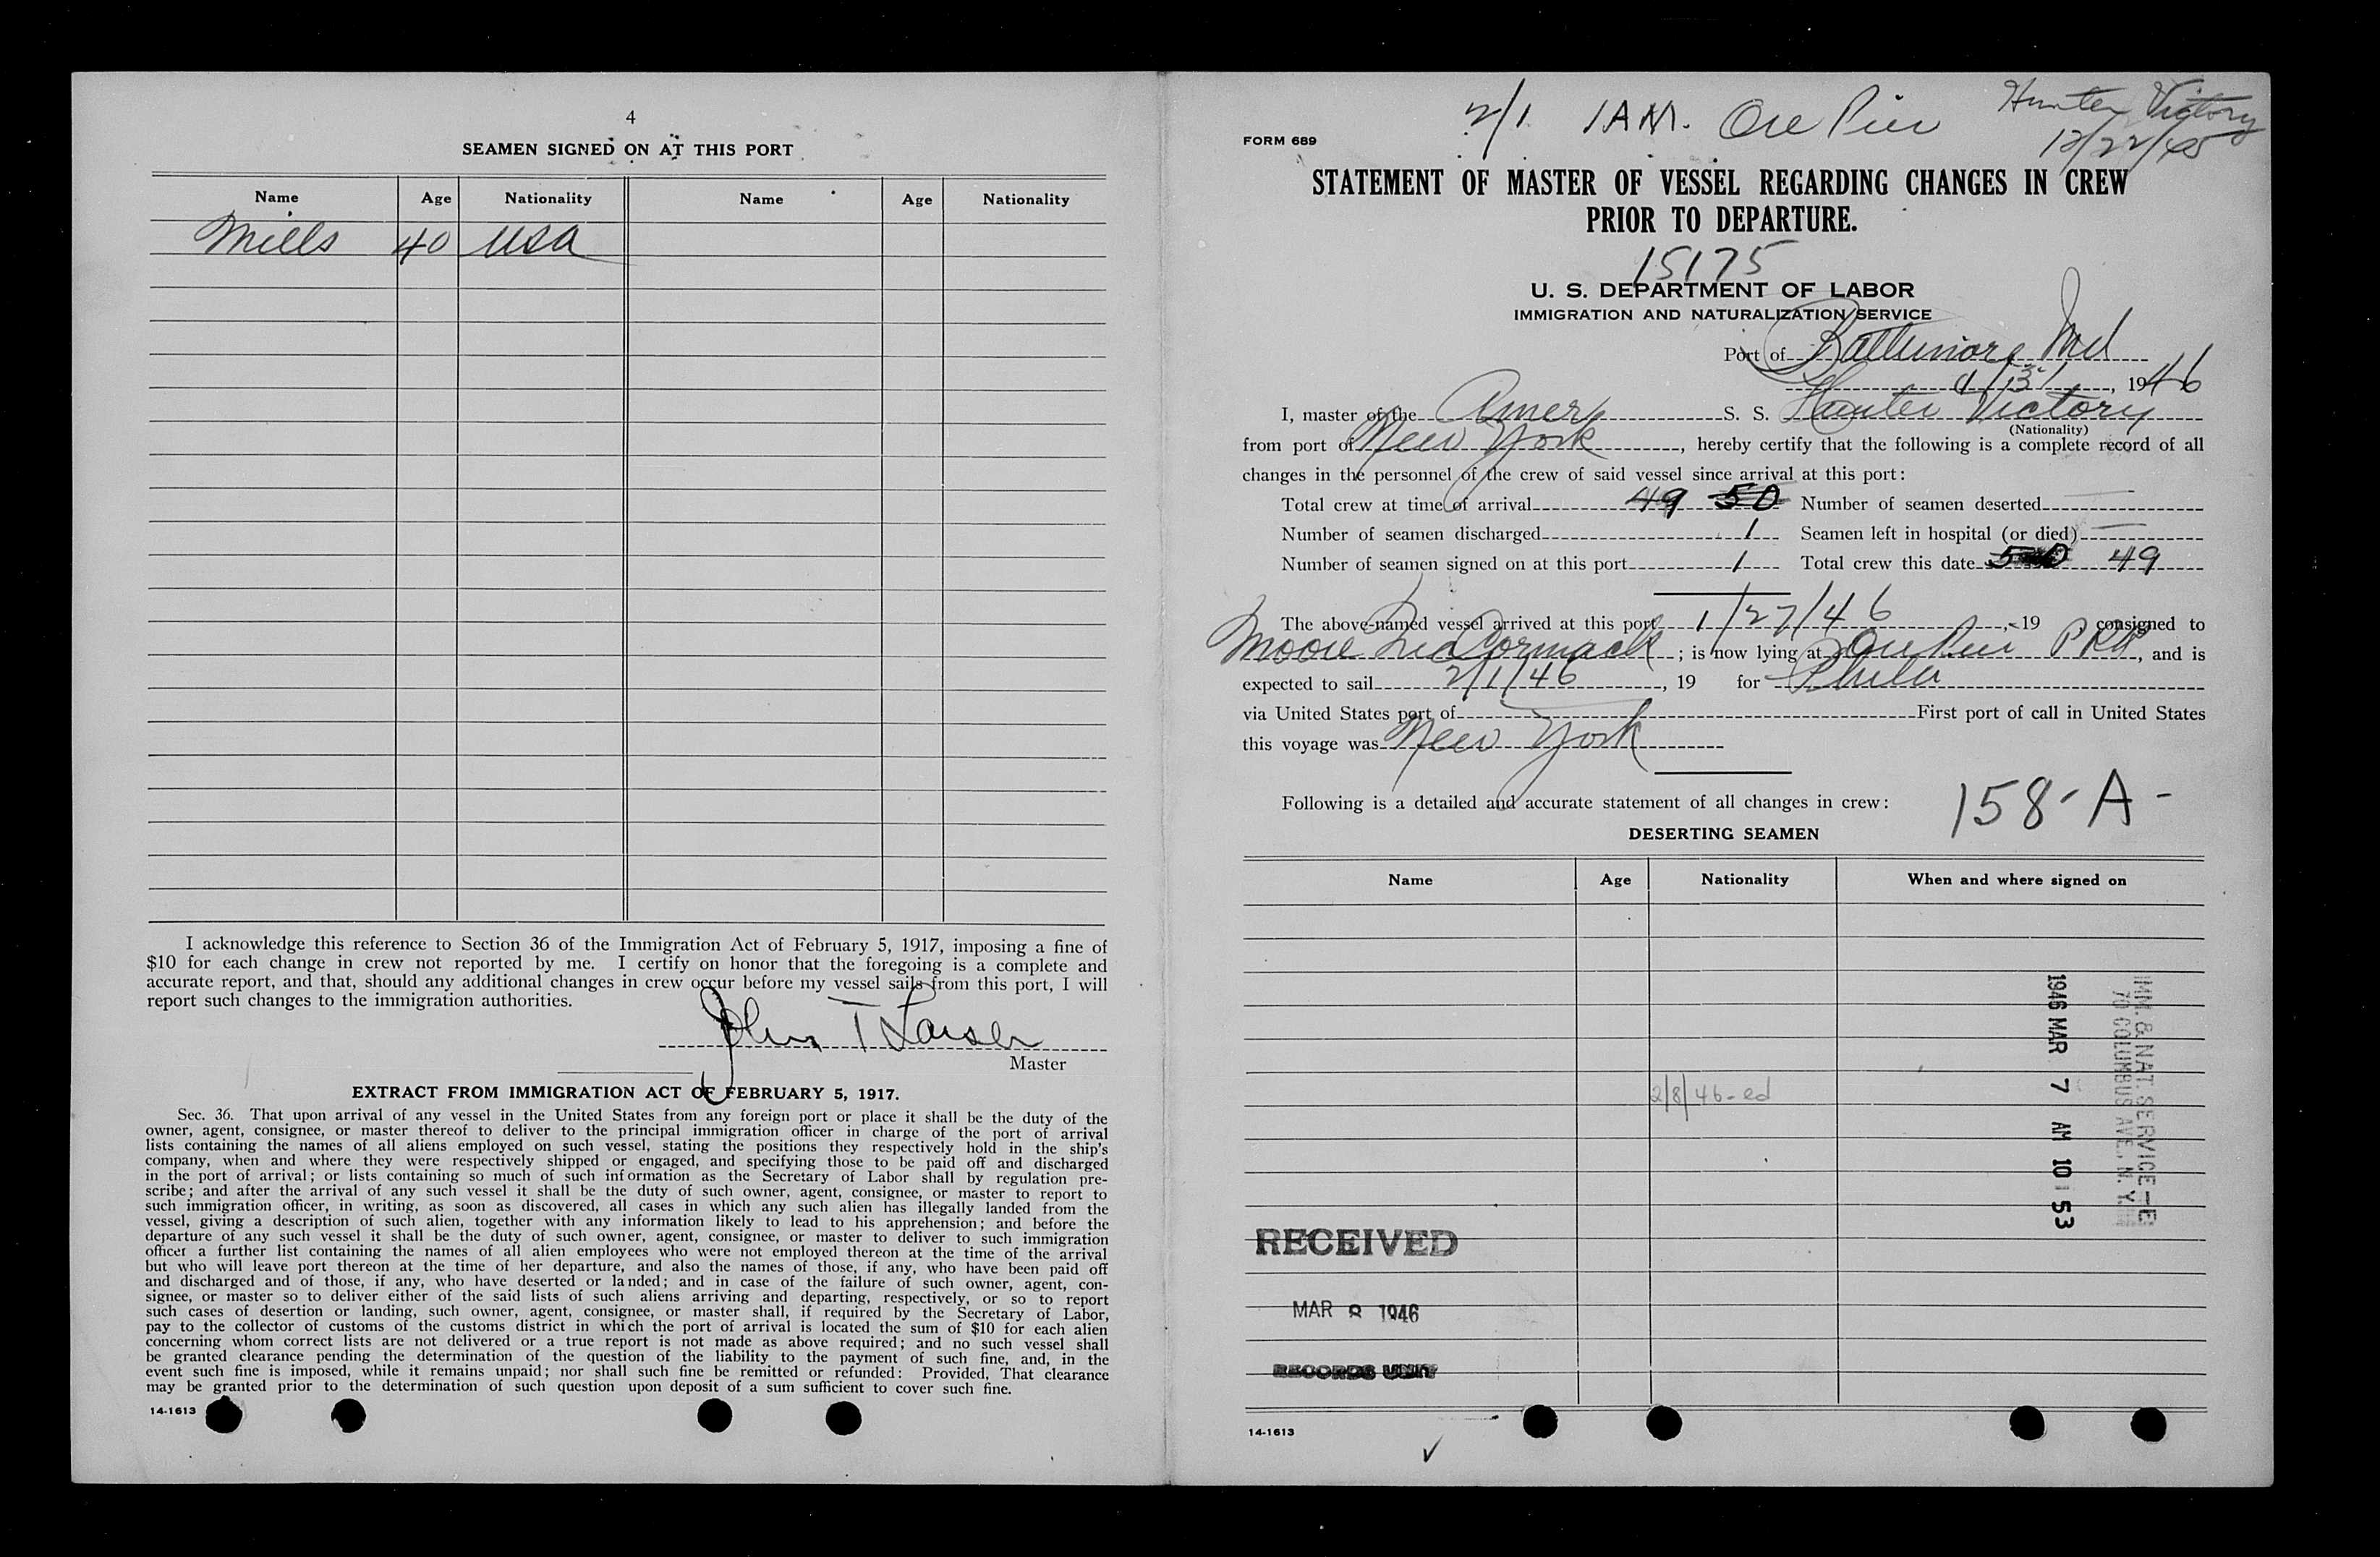 4
SEAMEN SIGNED ON AT THIS PORT
Name Age Nationality Name Age Nationality
Mills 40 USA
I acknowledge this reference to Section 36 of the Immigration Act of February 5, 1917, imposing a fine of
$10 for each change in crew not reported by me. I certify on honor that the foregoing is a complete and
accurate report, and that, should any additional changes in crew occur before my vessel sails from this port, I will
report such changes to the immigration authorities.
John T Larsen
Master
EXTRACT FROM IMMIGRATION ACT OF FEBRUARY 5, 1917.
Sec. 36. That upon arrival of any vessel in the United States from any foreign port or place it shall be the duty of the
owner, agent, consignee, or master thereof to deliver to the principal immigration officer in charge of the port of arrival
lists containing the names of all aliens employed on such vessel, stating the positions they respectively hold in the ship's
company, when and where they were respectively shipped or engaged, and specifying those to be paid off and discharged
in the port of arrival; or lists containing so much of such information as the Secretary of Labor shall by regulation pre-
scribe; and after the arrival of any such vessel it shall be the duty of such owner, agent, consignee, or master to report to
such immigration officer, in writing, as soon as discovered, all cases in which any such alien has illegally landed from the
vessel, giving a description of such alien, together with any information likely to lead to his apprehension; and before the
departure of any such vessel it shall be the duty of such owner, agent, consignee, or master to deliver to such immigration
officer a further list containing the names of all alien employees who were not employed thereon at the time of the arrival
but who will leave port thereon at the time of her departure, and also the names of those, if any, who have been paid off
and discharged and of those, if any, who have deserted or landed; and in case of the failure of such owner, agent, con-
signee, or master so to deliver either of the said lists of such aliens arriving and departing, respectively, or so to report
such cases of desertion or landing, such owner, agent, consignee, or master shall, if required by the Secretary of Labor,
pay to the collector of customs of the customs district in which the port of arrival is located the sum of $10 for each alien
concerning whom correct lists are not delivered or a true report is not made as above required; and no such vessel shall
be granted clearance pending the determination of the question of the liability to the payment of such fine, and, in the
event such fine is imposed, while it remains unpaid; nor shall such fine be remitted or refunded: Provided, That clearance
may be granted prior to the determination of such question upon deposit of a sum sufficient to cover such fine.
14-1613
2/1 1 AM. Ore Pier Hunter Victory
12/22/45
FORM 689
STATEMENT OF MASTER OF VESSEL REGARDING CHANGES IN CREW
PRIOR TO DEPARTURE.
15175
U. S. DEPARTMENT OF LABOR
IMMIGRATION AND NATURALIZATION SERVICE
Port of Baltimore Md
1/31, 1946
I, master of the Amer S. S. Hunter Victory
(Nationality)
from port of New York, hereby certify that the following is a complete record of all
changes in the personnel of the crew of said vessel since arrival at this port:
Total crew at time of arrival 49 50 Number of seamen deserted —
Number of seamen discharged 1 Seamen left in hospital (or died) —
Number of seamen signed on at this port 1 Total crew this date 50 49
The above-named vessel arrived at this port 1/27/46, 19 consigned to
Moore McCormack; is now lying at Ore Pier PRR, and is
expected to sail 2/1/46, 19 for Phila
via United States port of First port of call in United States
this voyage was New York
Following is a detailed and accurate statement of all changes in crew:
158-A-
DESERTING SEAMEN
Name Age Nationality When and where signed on
2/8/46-ed
IMM. & NAT. SERVICE
70 COLUMBUS AVE., N. Y.
1946 MAR 7 AM 10 53
RECEIVED
MAR 8 1946
RECORDS UNIT
14-1613